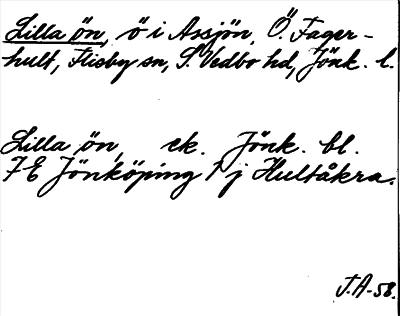 Lilla ön, ö i Assjön, Ö. Fager-
hult, Flisby sn, S. Vedbo hd, Jönk. l.
Lilla ön, ek. Jönk. bl.
7E Jönköping 1 j Hultåkra.
J.A-58.